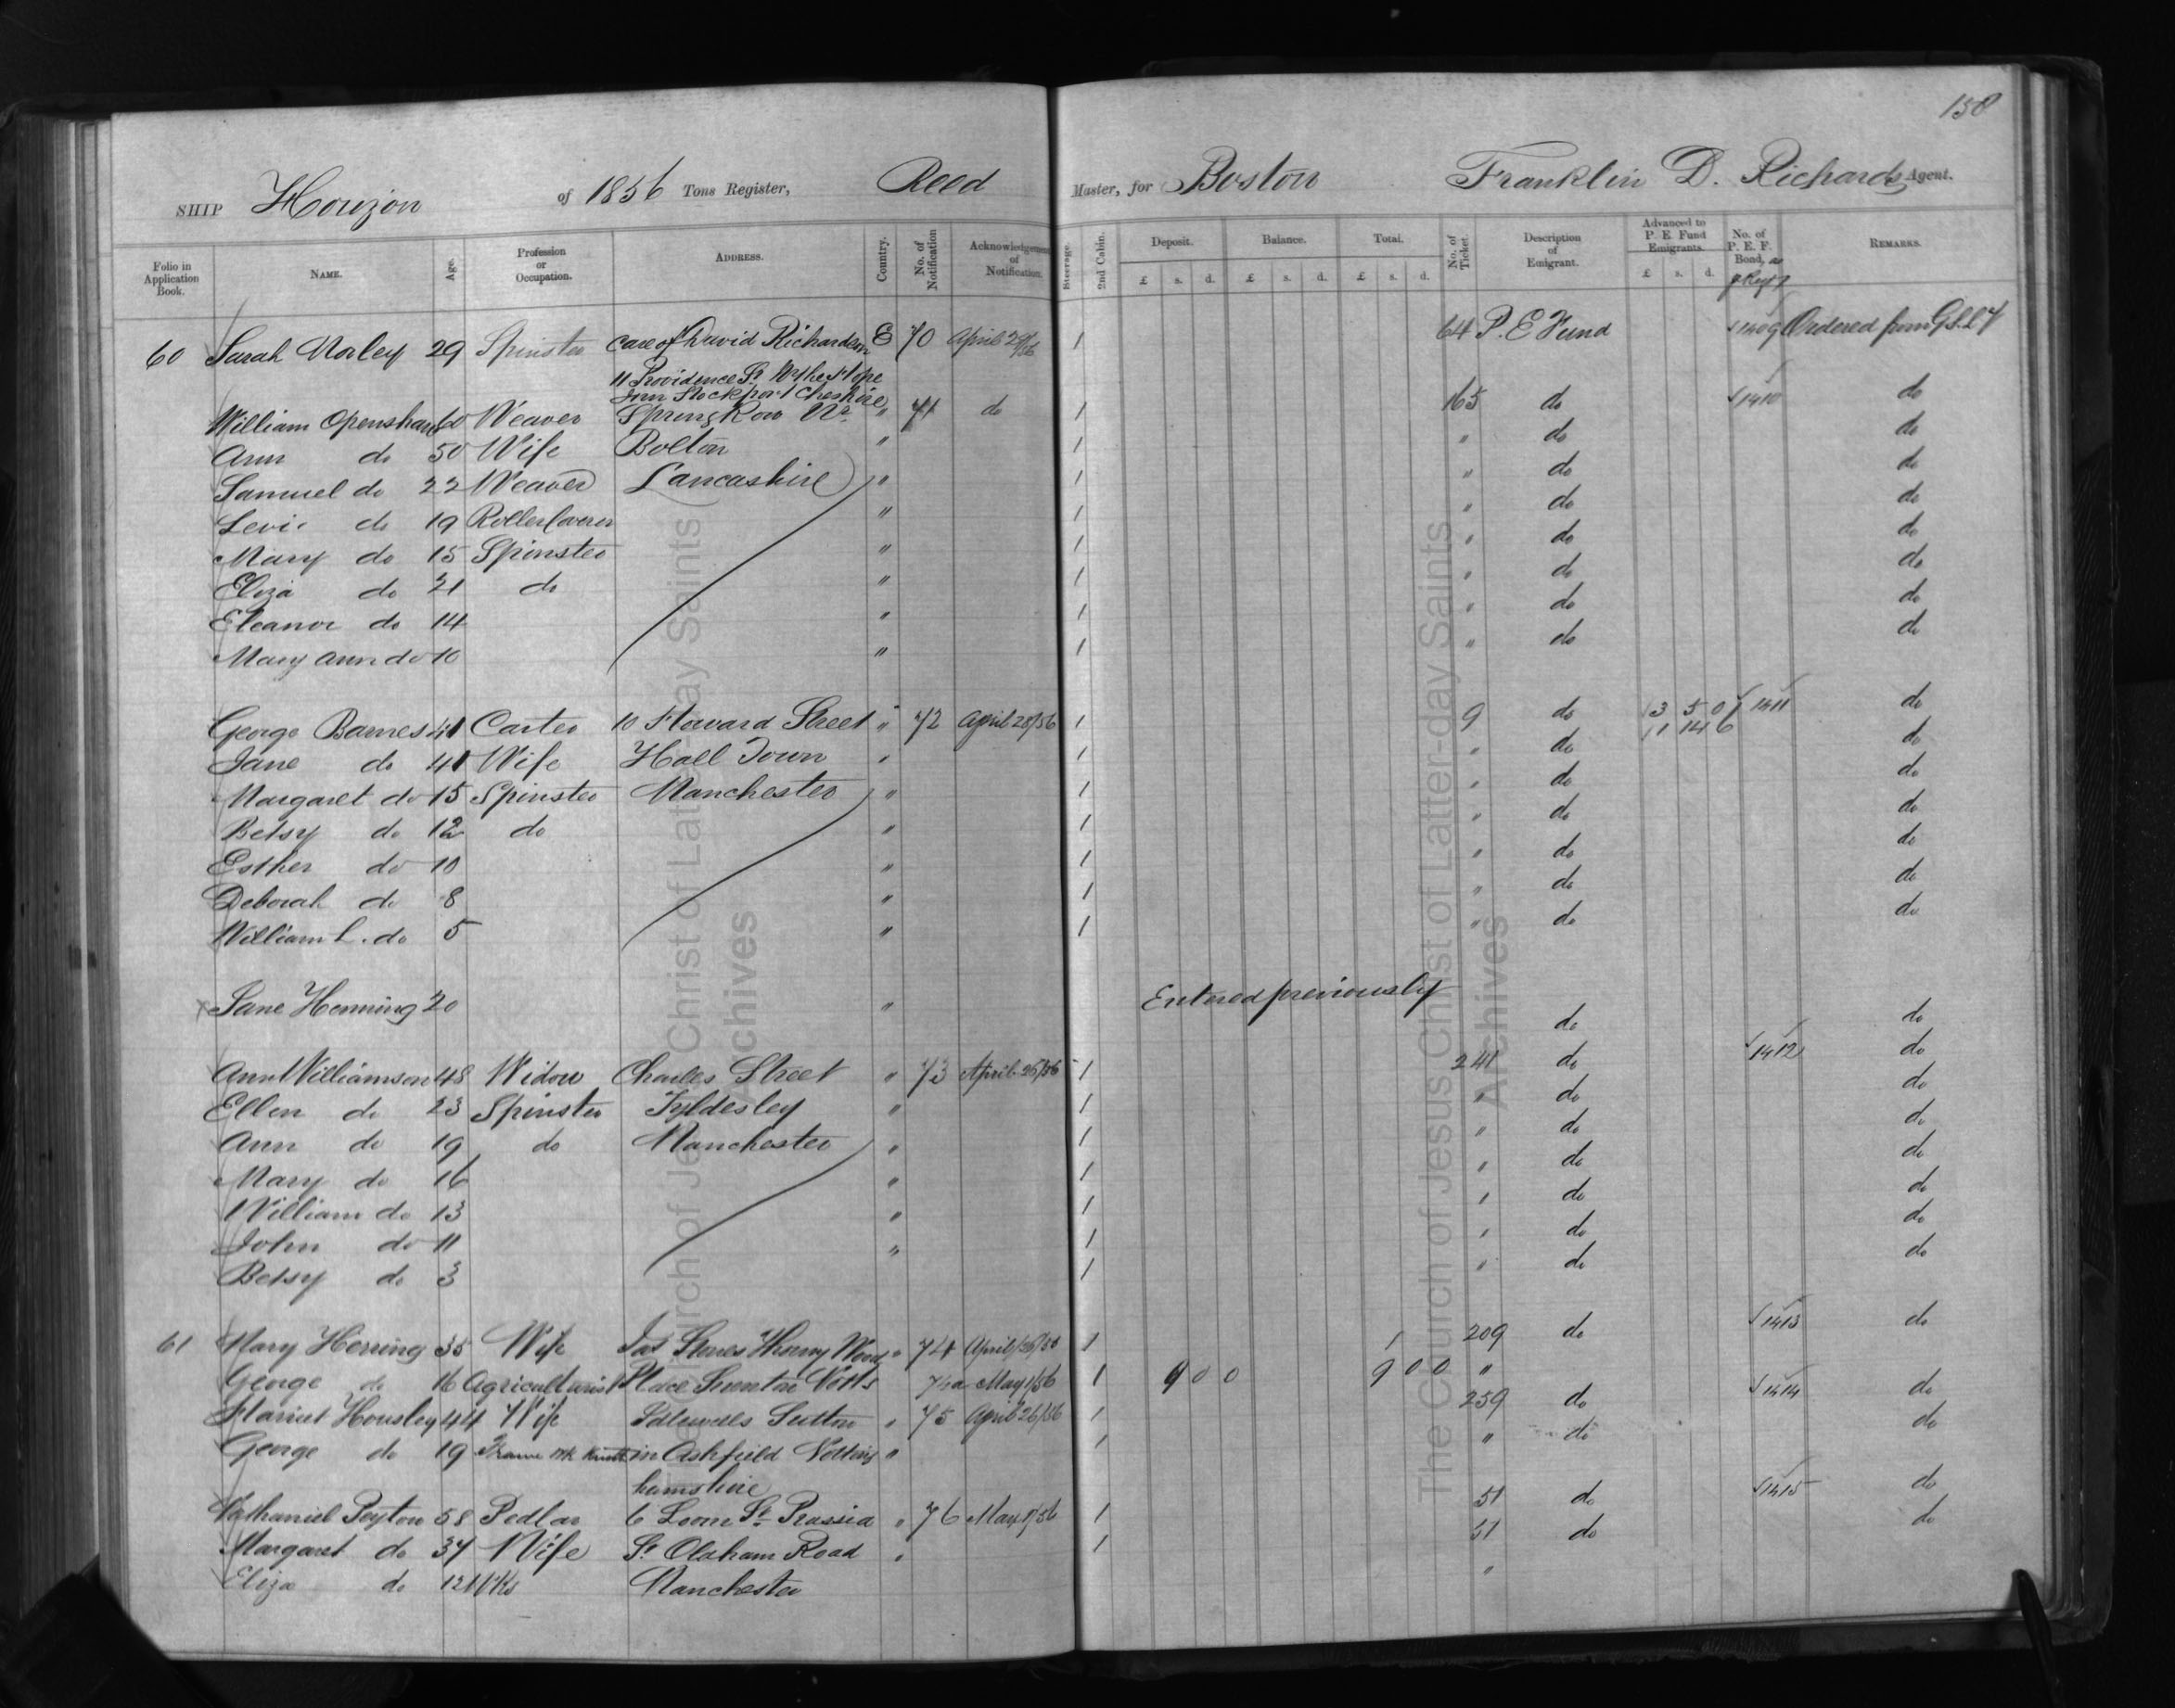 158
SHIP Horizon of 1856 Tons Register, Reed Master, for Boston Franklin D. Richards Agent.
Folio in Application Book. NAME. Age. Profession or Occupation. ADDRESS. Country. No. of Notification Acknowledgement of Notification. Steerage. 2nd Cabin. Deposit. £ s. d. Balance. £ s. d. Total. £ s. d. No. of Ticket. Description of Emigrant. Advanced to P. E. Fund Emigrants. £ s. d. No. of P. E. F. Bond, REMARKS.
60 Sarah Norley 29 Spinster care of David Richardson E 70 April 29/56 1 64 P. E Fund 1409 Ordered from G.S.L.
11 Providence St.
Inn Stockport Cheshire
William Openshaw 60 Weaver Spring Row " 71 do 1 165 do 1410 do
Ann do 50 Wife Bolton " 1 " do do
Samuel do 22 Weaver Lancashire " 1 " do do
Levi do 19 Roller Coverer " 1 " do do
Mary do 15 Spinster " 1 " do do
Eliza do 21 do " 1 " do do
Eleanor do 14 " 1 " do do
Mary Ann do 10 " 1 " do do
George Barnes 41 Carter 10 Howard Street " 72 April 28/56 1 9 do 3 5 0 1411 do
11 14 6
Jane do 41 Wife Hall Town " 1 " do do
Margaret do 15 Spinster Manchester " 1 " do do
Betsy do 12 do " 1 " do do
Esther do 10 " 1 " do do
Deborah do 8 " 1 " do do
William L. do 5 " 1 " do do
x Jane Henning 20 " Entered previously do do
Ann Williamson 48 Widow Charles Street " 73 April 26/56 1 241 do 1412 do
Ellen do 23 Spinster Tyldesley " 1 " do do
Ann do 19 do Manchester " 1 " do do
Mary do 16 " 1 " do do
William do 13 " 1 " do do
John do 11 " 1 " do do
Betsy do 3 " 1 " do do
61 Mary Herring 35 Wife Jas Stones Wood " 74 April 26/56 1 1 209 do 1413 do
George do 16 Agriculturist Place Notts 74a May 1/56 1 9 0 0 9 0 0 "
Harriet Housley 44 Wife Idlewells Sutton " 75 April 26/56 1 259 do 1414 do
George do 19 Frame in Ashfield Notting " 1 " do do
hamshire
Nathaniel Peyton 58 Pedlar 6 Loom St. Prussia " 76 May 1/56 1 51 do 1415 do
Margaret do 34 Wife St. Oldham Road " 1 51 do do
Eliza do 12 Wks Manchester "
The Church of Jesus Christ of Latter-day Saints
Archives
The Church of Jesus Christ of Latter-day Saints
Archives